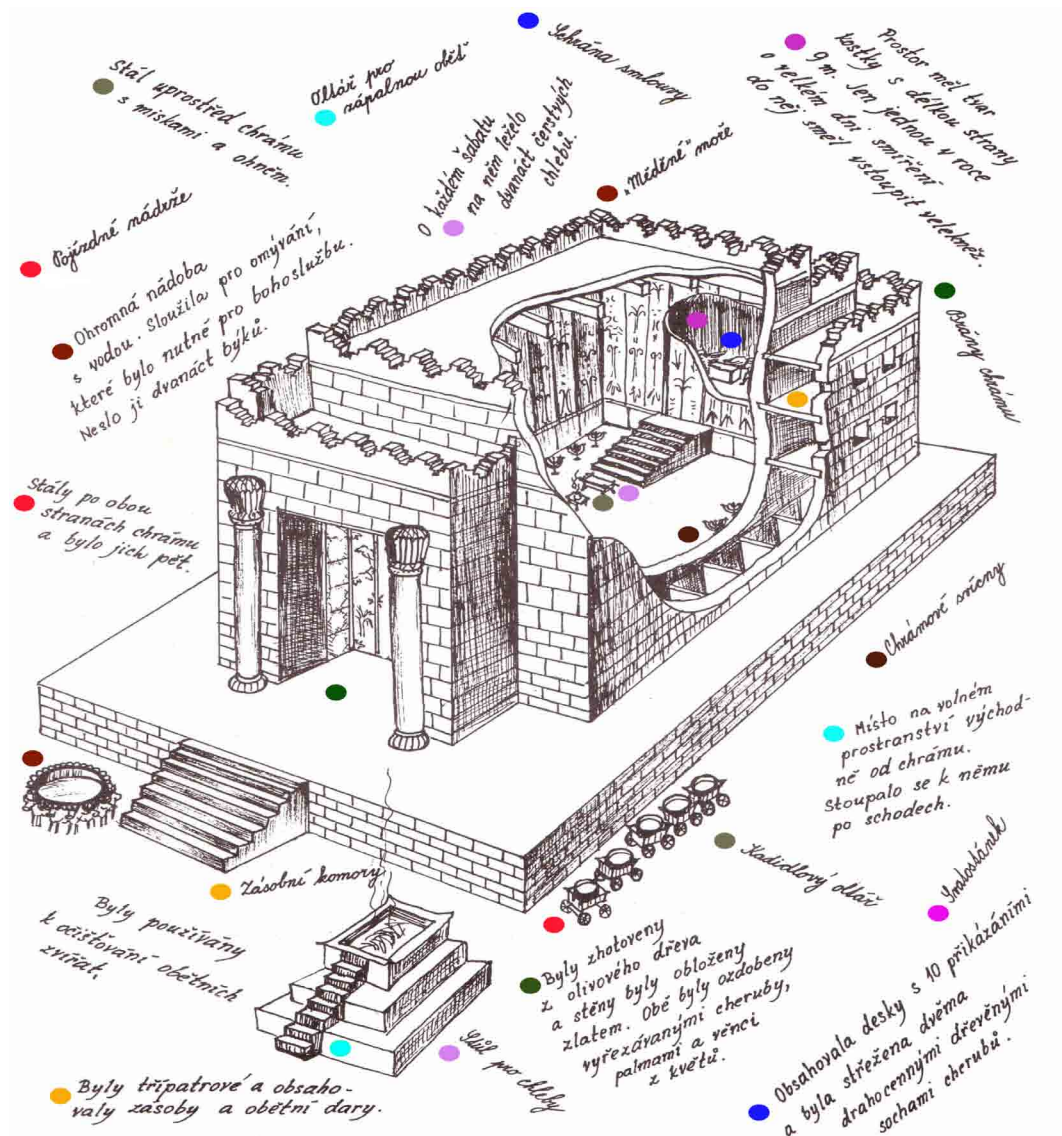 Stál uprostřed chrámu
s miskami a ohněm.
Oltář pro
zápalnou oběť
Schrána smlouvy
Prostor měl tvar
kostky s délkou strany
9 m. Jen jednou v roce
o velkém dni smíření
do něj směl vstoupit velekněz.
O každém šabatu
na něm leželo
dvanáct čerstvých
chlebů.
„Měděné“ moře
Pojízdné nádrže
Ohromná nádoba
s vodou. Sloužila pro omývání,
které bylo nutné pro bohoslužbu.
Neslo ji dvanáct býků.
Brány chrámu
Stály po obou
stranách chrámu
a bylo jich pět.
Chrámové svícny
Místo na volném
prostranství východ-
ně od chrámu.
Stoupalo se k němu
po schodech.
Kadidlový oltář
Svatostánek
Zásobní komory
Byly používány
k očišťování obětních
zvířat.
Byly zhotoveny
z olivového dřeva
a stěny byly obloženy
zlatem. Obě byly ozdobeny
vyřezávanými cheruby,
palmami a věnci
z květů.
Stůl pro chleby
Byly třípatrové a obsaho-
valy zásoby a obětní dary.
Obsahovala desky s 10 přikázáními
a byla střežena dvěma
drahocennými dřevěnými
sochami cherubů.